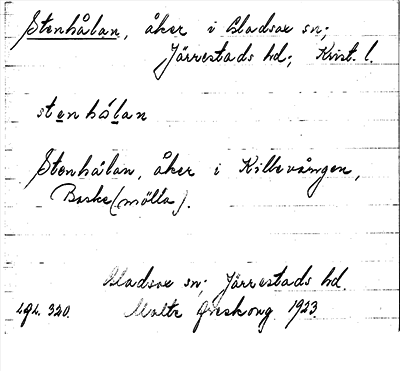 Stenhålan, åker i Gladsax sn;
Järrestads hd; Krist. l.
stenhålan
Stenhålan, åker i Killevången,
Baske(mölla).
Gladsax sn; Järrestads hd.
320. Malte 1923